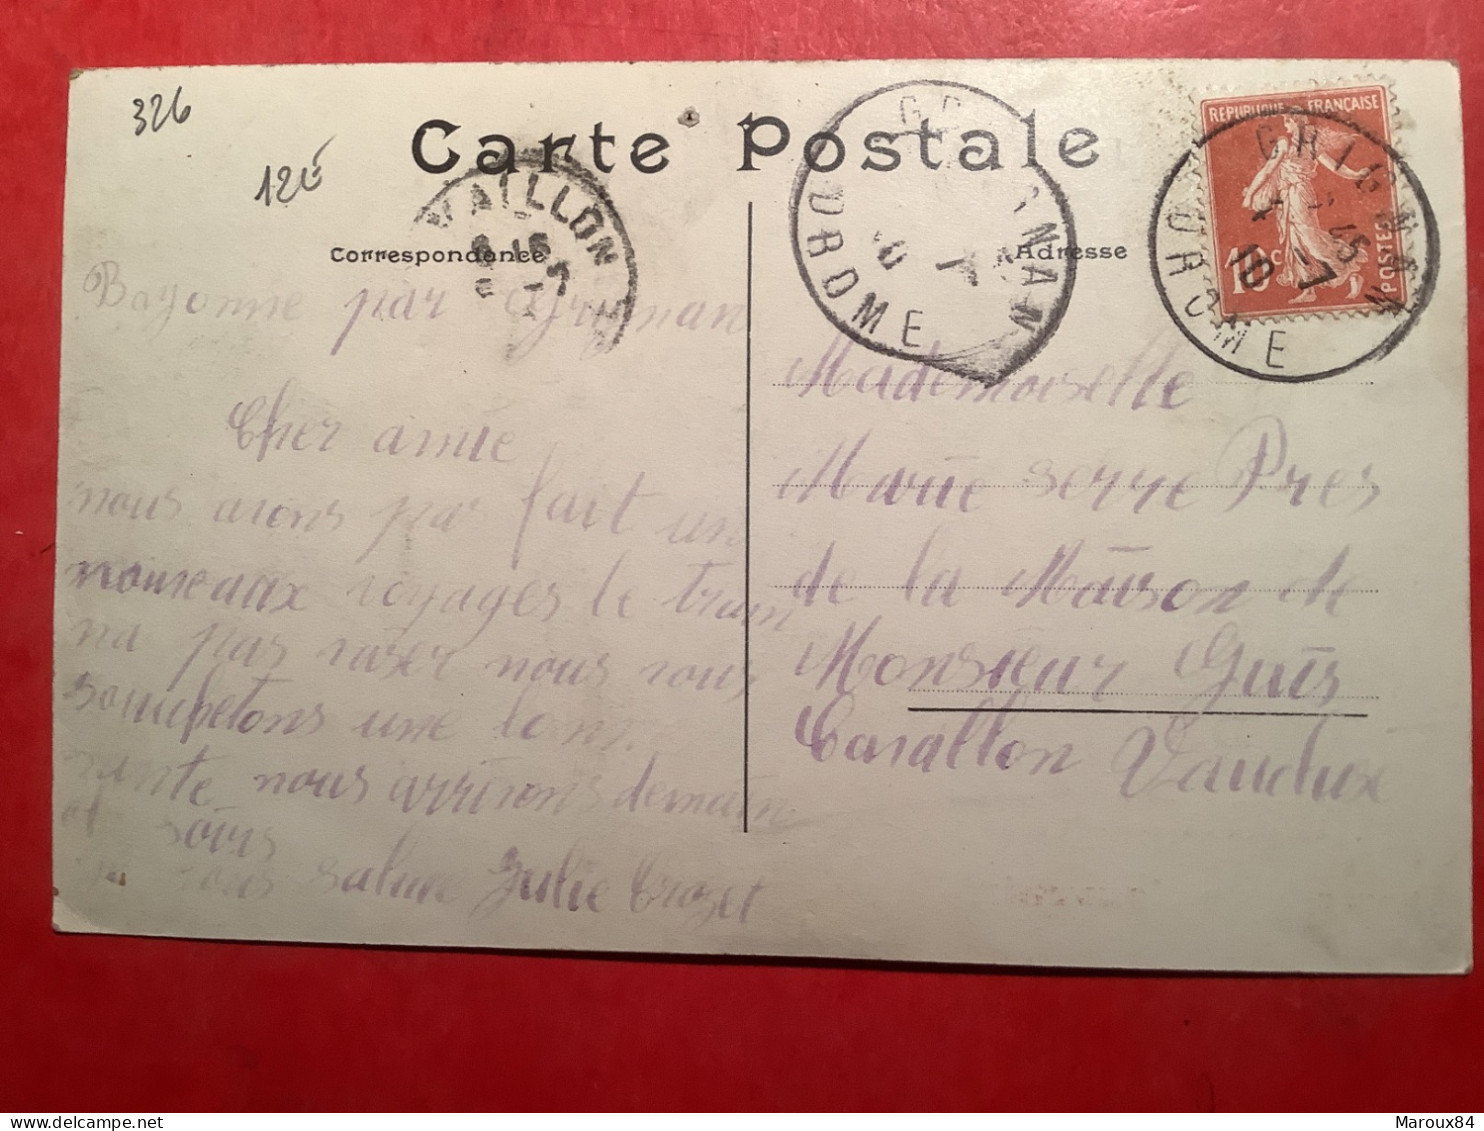 326
12€
Carte Postale
REPUBLIQUE FRANÇAISE
10c
POSTES
GRIGNAN
DROME
GRIGNAN
DROME
VAILLON
Correspondance
Adresse
Bayonne par Grignan
Cher amie
nous avons pas fait un
nouveaux voyages le train
na pas
nous vous
souhetons une bonne
nous arrivons demain
soirs
vous salue Julie Crozet
Mademoiselle
Marie Serre Pres
de la Maison de
Monsieur Guis
Cavallon Vaucluse
Maroux84